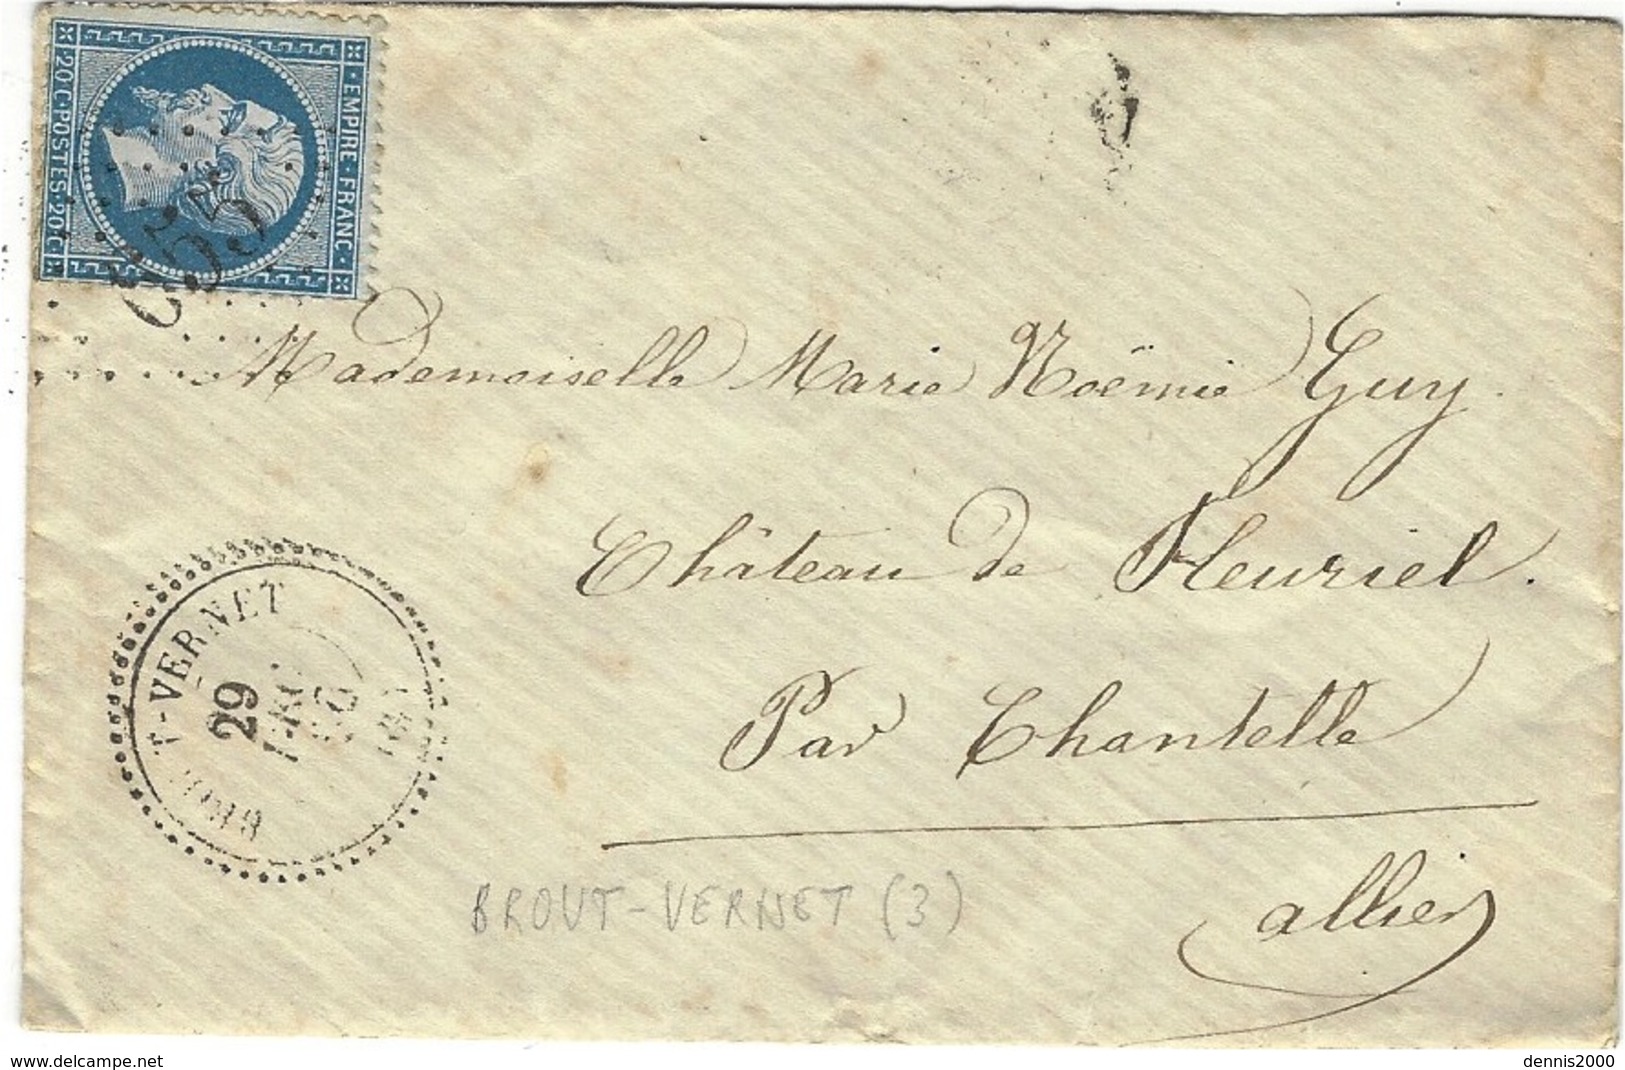 EMPIRE·FRANC·
·20·C·POSTES·20·C·
Mademoiselle Marie Noëmie Guy.
Château de Fleuriel.
Par Chantelle
allier
T-VERNET
29
BROUT-VERNET (3)
www.delcampe.net
dennis2000